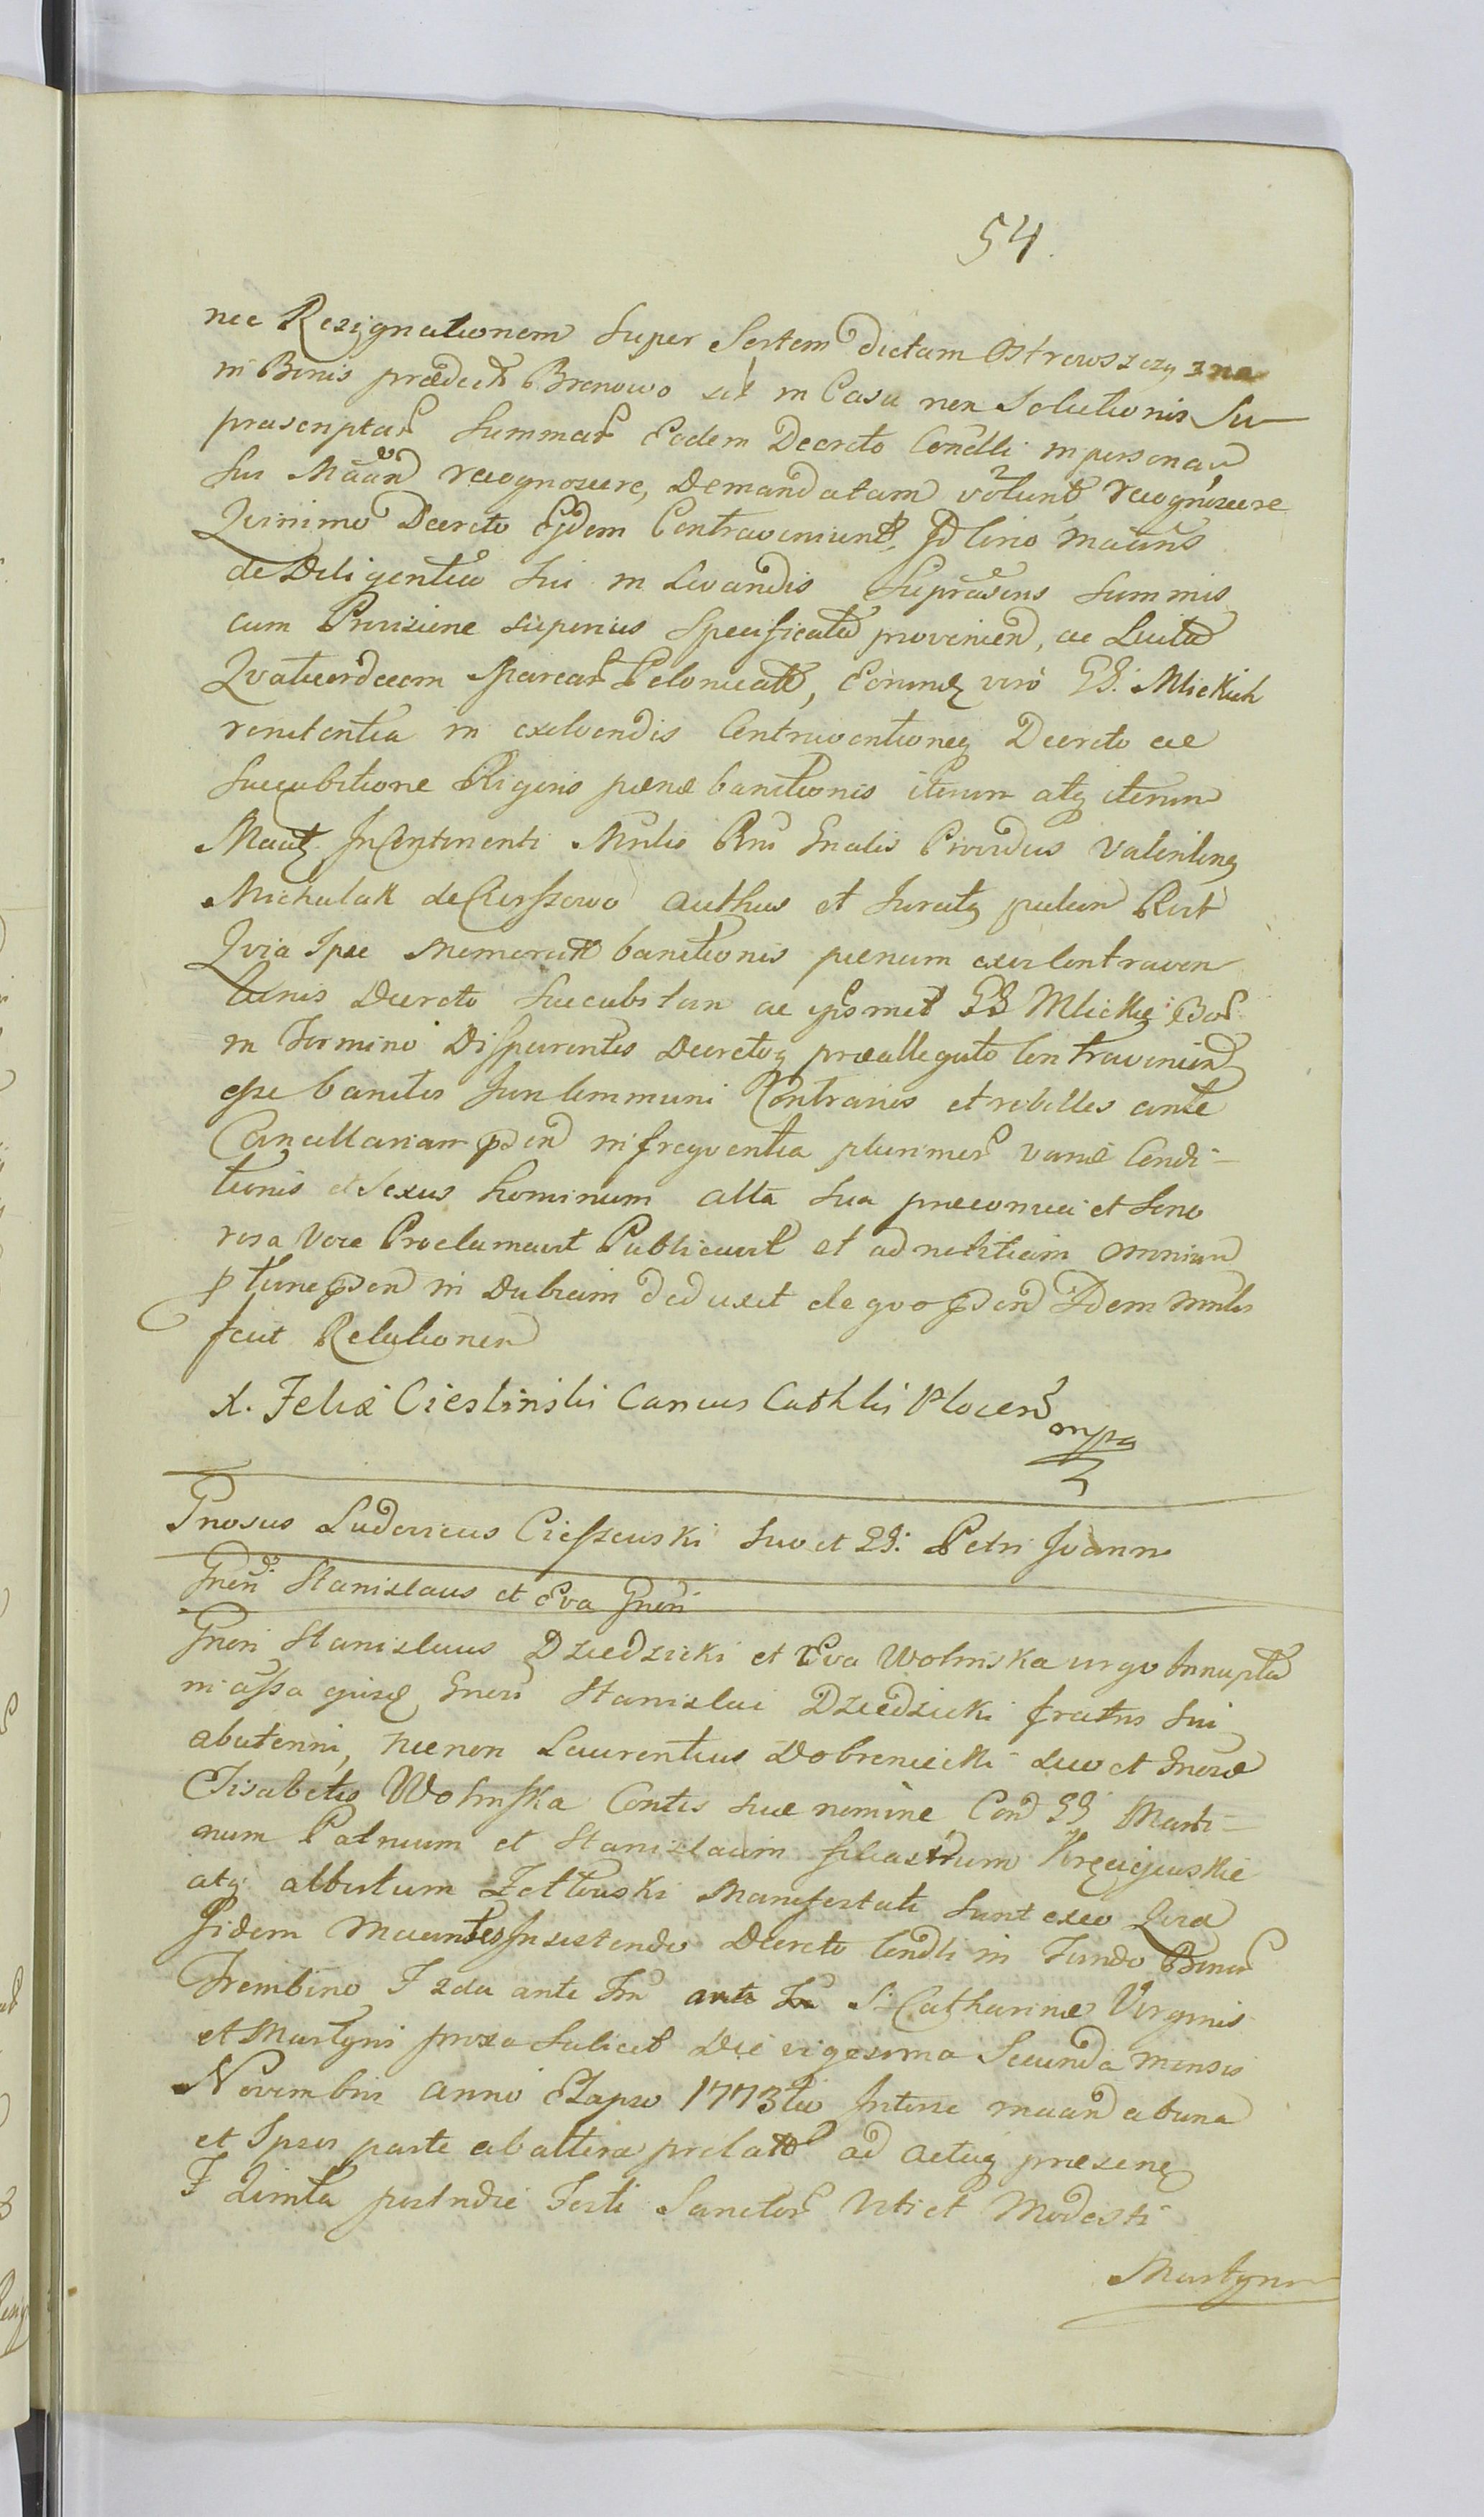 54.
nec Rezignationem super Sortem dictam Ostrowszczyzna
in Bonis praedict Bronowo sit in Casu non Solutionis Su
prascriptar Summar Eodem Decreto Condlli in personam
sui Maan recognoscere, Demandatam volunt recognoscere
Quinimo Decreto Ejdem Contraveniunt, Id Circo
de Diligentia sui in Levandis Suprascris Summis
cum Provisione superius Specificata provenien, ac Luita
Qvatuordecem Marcar Polonicat, Eorumq vero GG. Mlickich
renitentia in exolvendis Contraventioneq Decreto ac
Succubitione Rigoris paenae banitionis iterum atq iterum
Incontinenti Mnlis Rni Gnalis Providus Valentinq
Michalak de Cierszewo authus et Juratq palam Rect
Qvia Ipse Memorat banitionis paenam exer Contraven
tionis Decreto succubitam ac ipsmet GG Mlickie
in Termino Disparentes Decretoq praeallegato Contravenien
esse banitos Jun Communi Contrarios et rebelles ante
Cancellariam psen in freqventia plurimor variae Condi-
tionis et Sexus Hominum alta sua praeconica et Sono
rosa Voce Proclamavit Publicavit et ad notitiam omnium
ptione psen in Dubium deduxit de qvo psen Idem Mnlis
fecit Relationem
X. Felix Ciesliński Canous Cathlis Plocen mpa
Gnosus Ludovicus Cieszewski suo et GG: Petri Joann
Gneri Stanislaus et Eva Gneri
Gneri Stanislaus Dziedzicki et Eva Wolinska virgo Innupta
in assa ejusq Gneri Stanislai Dziedzicki fratris sui
abutenni, necnon Laurentius Dobreniecki suo et Gnerae
Elisabetis Wolinska Contis suae nomine Con GG Marti-
num Patruum et Stanislaum filiastrum
atq albertum Zoltowski Manifestati sunt exeo Qvia
Iidem Insistendo Decreto Condli in Fundo Bonor
Trembino F 2da ante Fm ante Fm S: Catharinae Virginis
et Martyris proxa Salicet Die vigesima Secunda mensis
Novembris anno Elapso 1773tio Interse maan abuna
et Ipsos parte ab altera prolatt ad actaq praesenq
F Qvinta postridie Festi Sanctor Viti et Modesti
Martyru